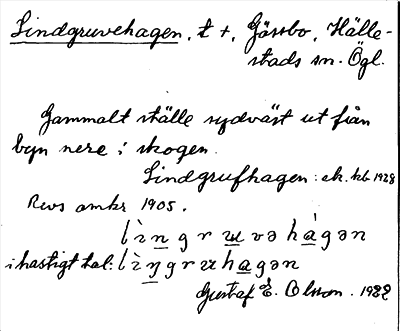 Lindgruvehagen, t +, Gässbo, Hälle-
stads sn. Ögl.
Gammalt ställe sydväst ut från
byn nere i skogen.
Lindgrufhagen: ek. kb 1928
Revs omkr 1905.
lìngruvəhàgən
i hastigt tal: lìŋgruhagən
Gustaf E. Olsson. 1932